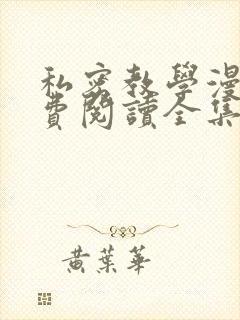 私密教學漫
費閱讀全集
黃葉華